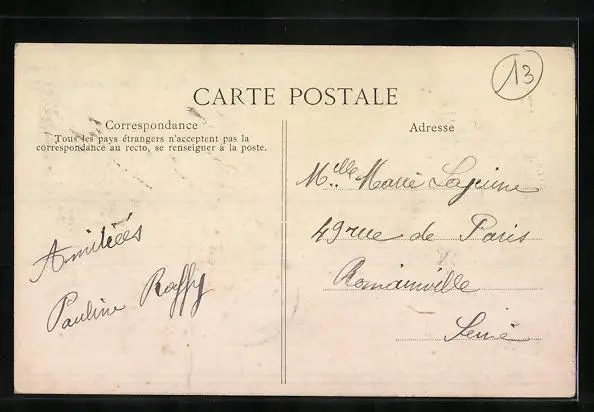 13
CARTE POSTALE
Correspondance
Tous les pays étrangers n'acceptent pas la
correspondance au recto, se renseigner à la poste.
Adresse
Melle Marie Lajeune
49 rue de Paris
Romainville
Seine
Amitiées
Pauline Raffy